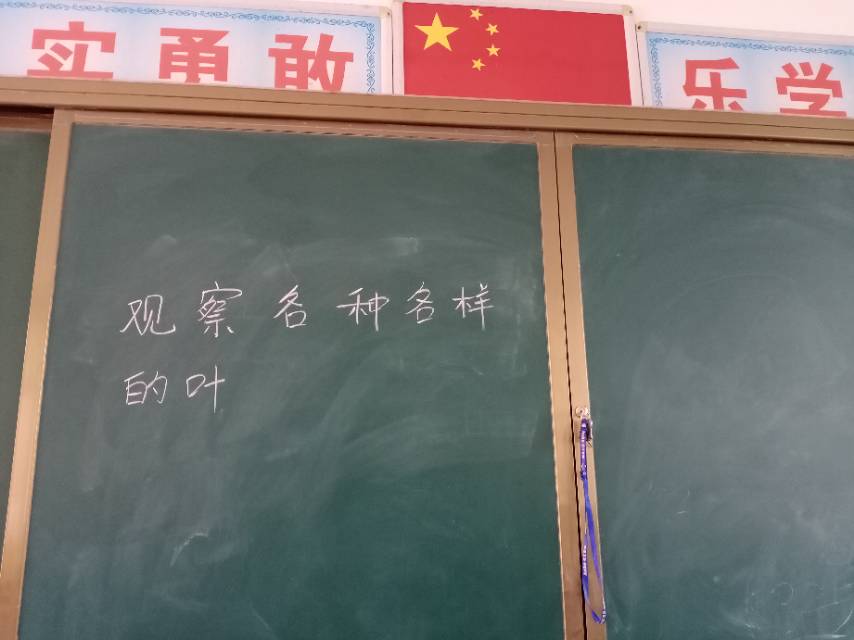 实勇敢
乐学
观察各种各样
的叶